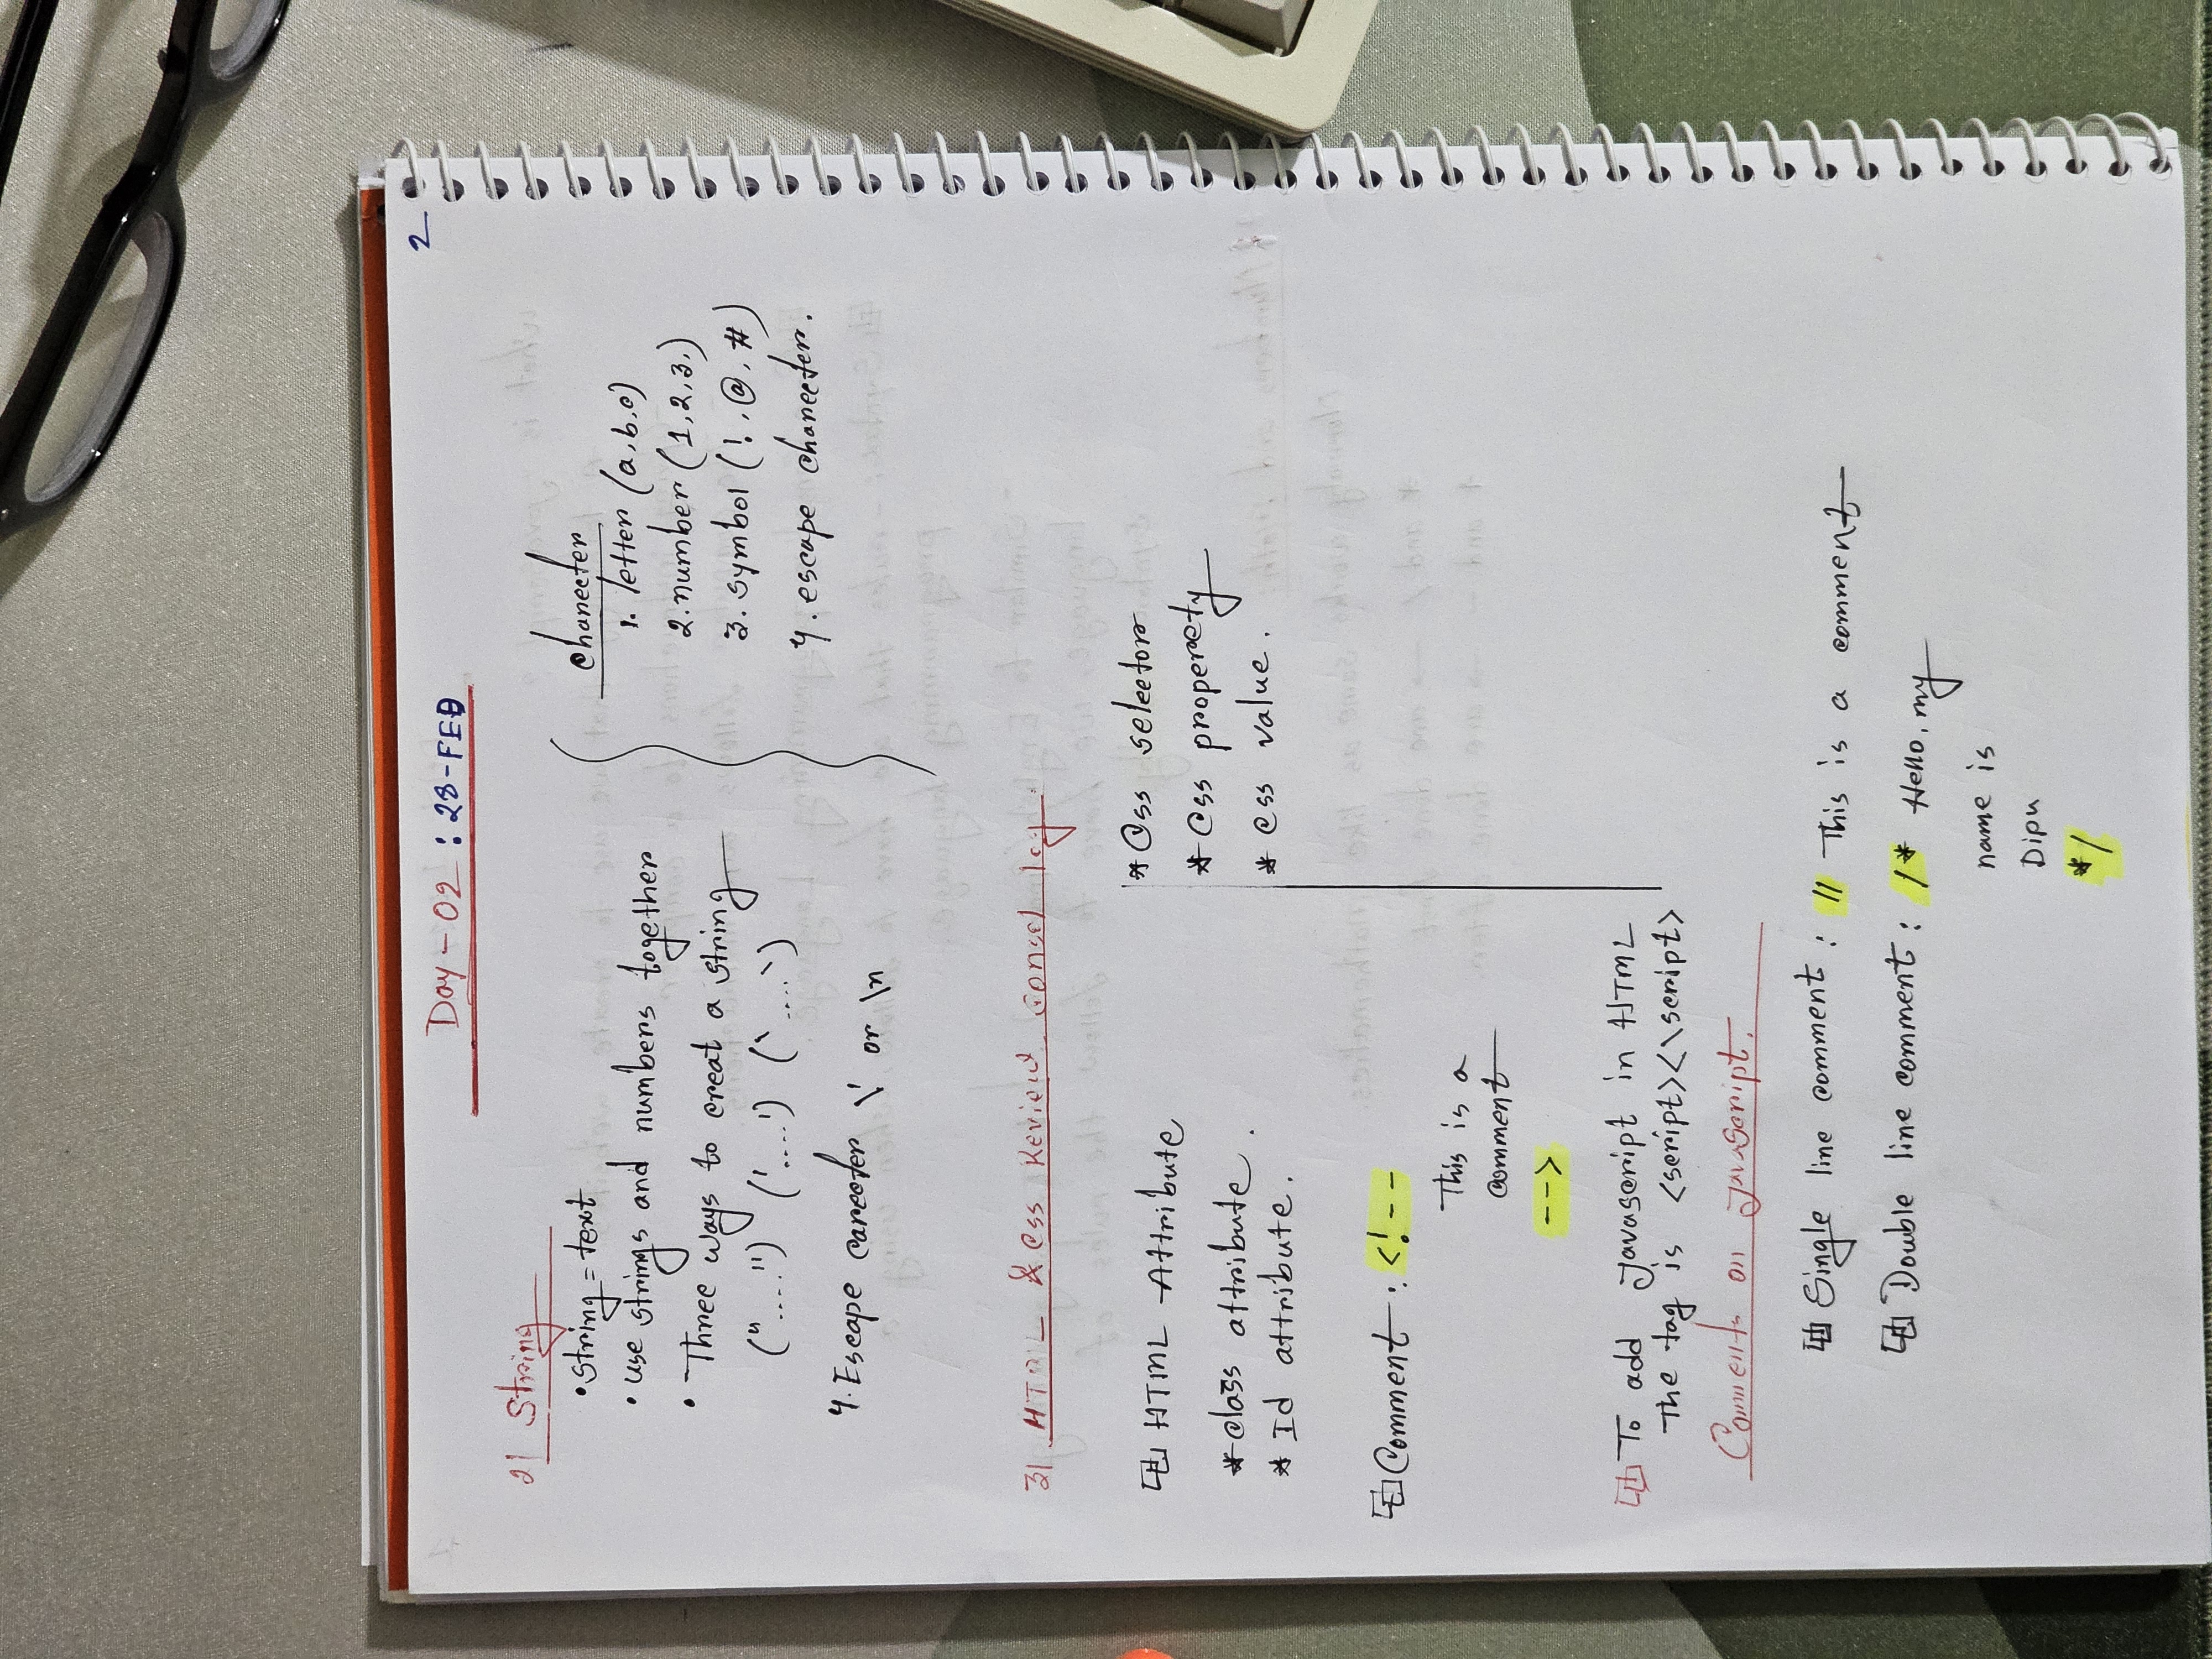 2
Day - 02 : 28-FEB
2) String
• string = text
• use strings and numbers together
• Three ways to creat a string
("....") ('....') (`....`)
4. Escape carecter \' or \n
charecter
1. letter (a,b,c)
2. number (1,2,3,)
3. symbol (!,@,#)
4. escape charecter.
3) HTML & Css Review consol log.
HTML Attribute
* class attribute.
* Id attribute.
Comment : <!--
This is a
comment
-->
To add Javascript in HTML
The tag is <script><\script>
* Css selector
* Css properety
* Css value.
Comments on JavaScript.
Single line comment : // This is a comment
Double line comment : /* Hello, my
name is
Dipu
*/